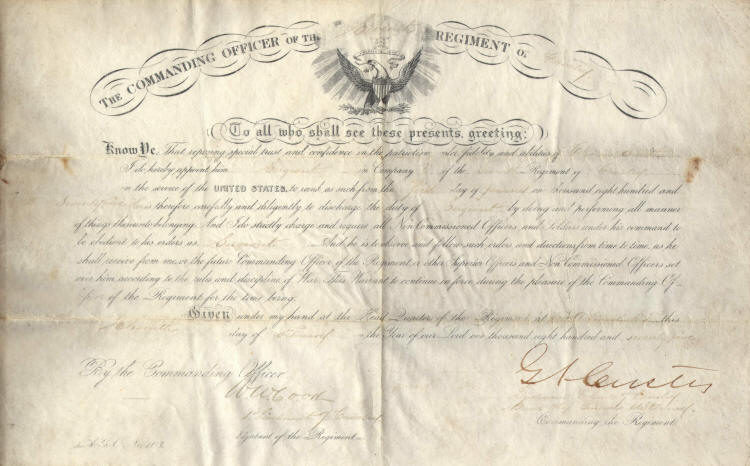 THE COMMANDING OFFICER OF THE REGIMENT OF Cavalry
To all who shall see these presents, greeting:
Know Ye, That reposing special trust and confidence in the patriotism, valor, fidelity and abilities of
I do hereby appoint him Sergeant in Company of the Seventh Regiment of Cavalry
in the service of the UNITED STATES, to rank as such from the first day of one thousand eight hundred and
He is therefore carefully and diligently to discharge the duty of Sergeant by doing and performing all manner
of things thereunto belonging. And I do strictly charge and require all Non Commissioned Officers and Soldiers under his command to
be obedient to his orders as Sergeant And he is to observe and follow such orders, and directions from time to time, as he
shall receive from me, or the future Commanding Officer of the Regiment, or other Superior Officers and Non Commissioned Officers set
over him, according to the rules and discipline of War. This Warrant to continue in force during the pleasure of the Commanding Of-
ficer of the Regiment for the time being.
Given under my hand at the Head Quarters of the Regiment, at this
day of in the Year of our Lord one thousand eight hundred and seventy five
By the Commanding Officer
G A Custer
W W Cook
1st Lieutenant 7th Cavalry
Adjutant of the Regiment.
Commanding the Regiment